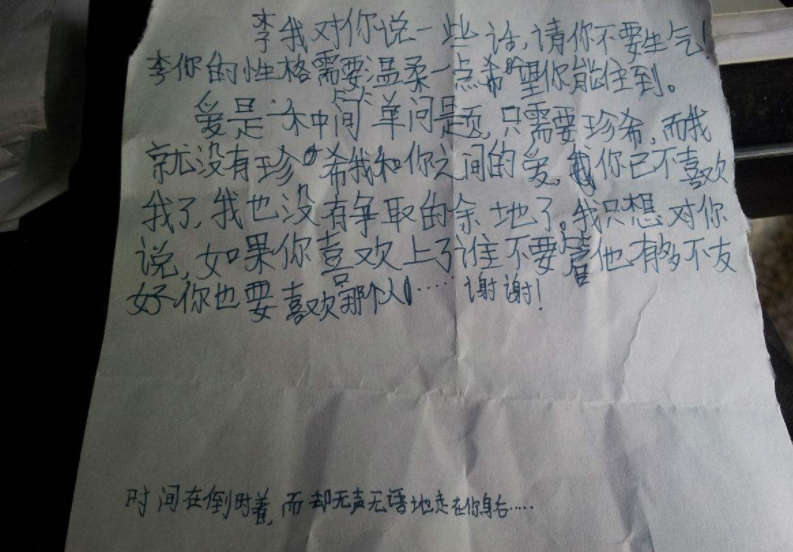 李我对你说一些话,请你不要生气!
李你的性格需要温柔一点希望你能住到。
爱是一木中间单问是题,只需要珍希,而我
就没有珍希我和你之间的爱,你已不喜欢
我了,我也没有争取的余地了。我只想对你
说,如果你喜欢上了谁不要管他有多不友
好你也要喜欢那个人……谢谢!
时间在倒时着,而却无声无语地走在你身右……